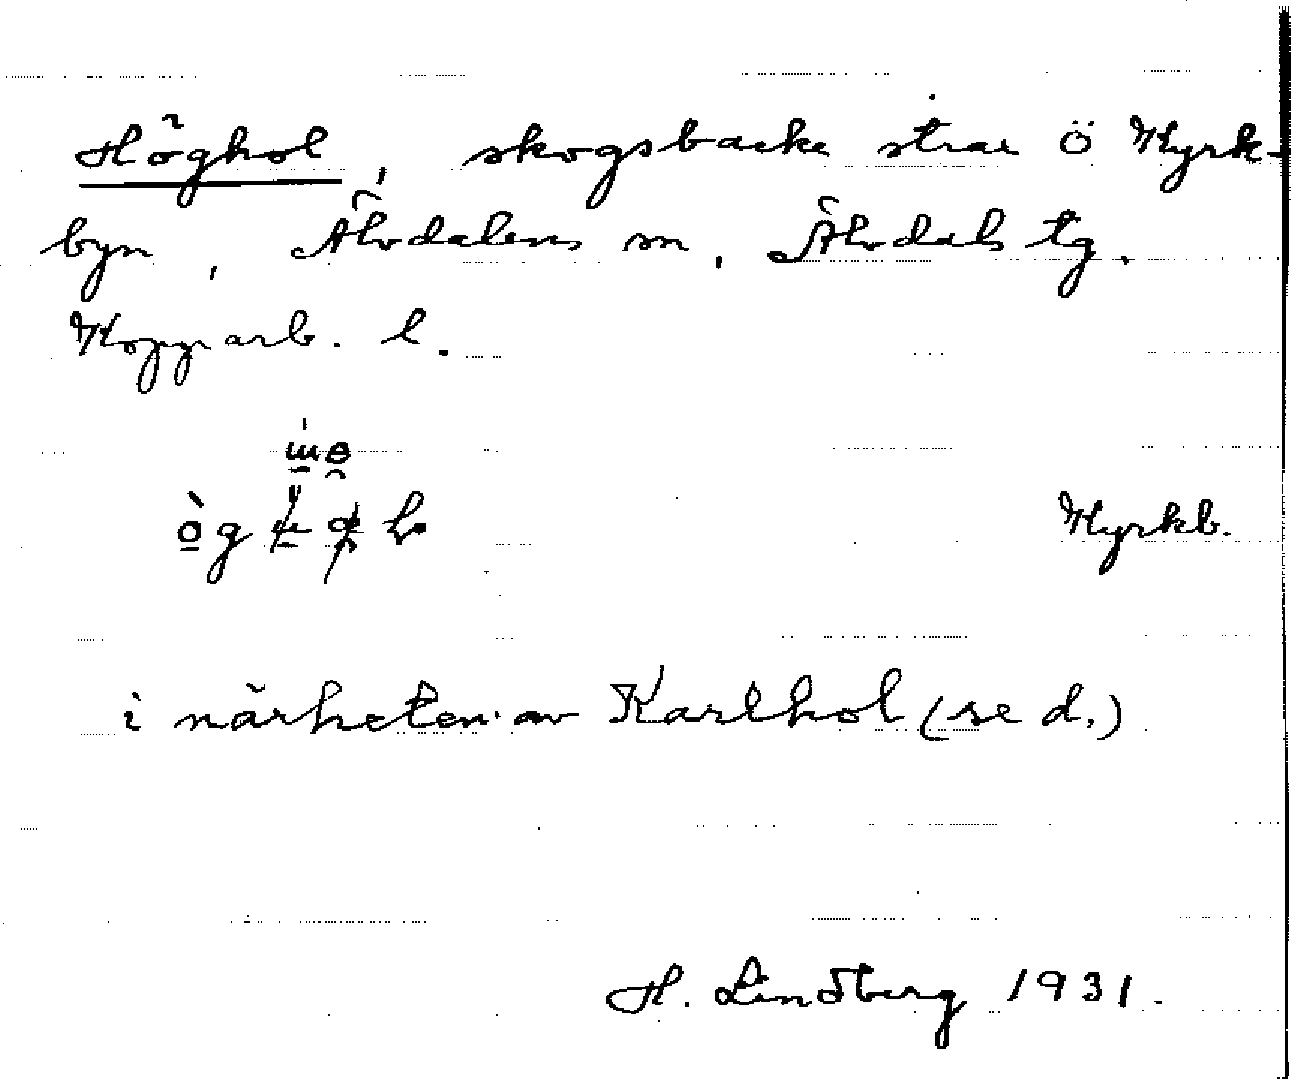 Höghol, skogsbacke strax ö Kyrk-
byn, Älvdalens sn, Älvdals tg.
Kopparb. l.
Kyrkb.
i närheten av Karlhol (se d.)
H. Lindberg 1931.